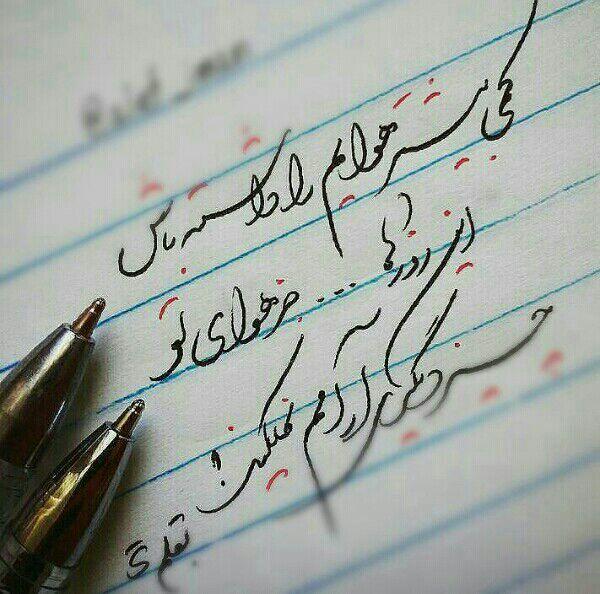 کمی بیشتر هوایم را داشته باش
این روزها .... جز هوای تو
چیز دیگری آرامم نمیکند!
بقلم